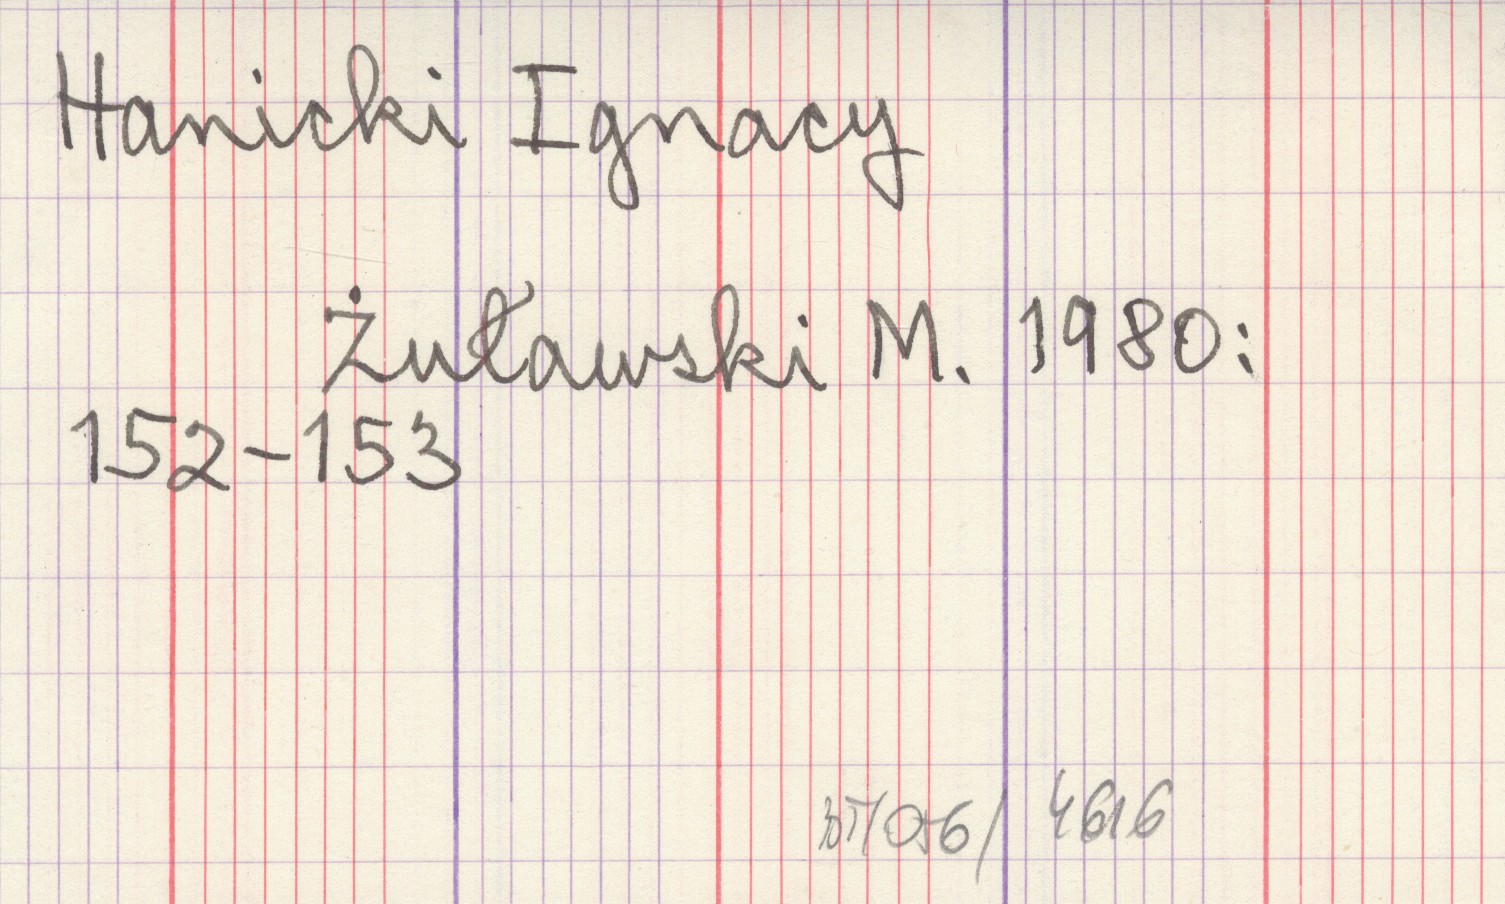 Hanicki Ignacy
Żuławski M. 1980:
152-153
/056/ 4616